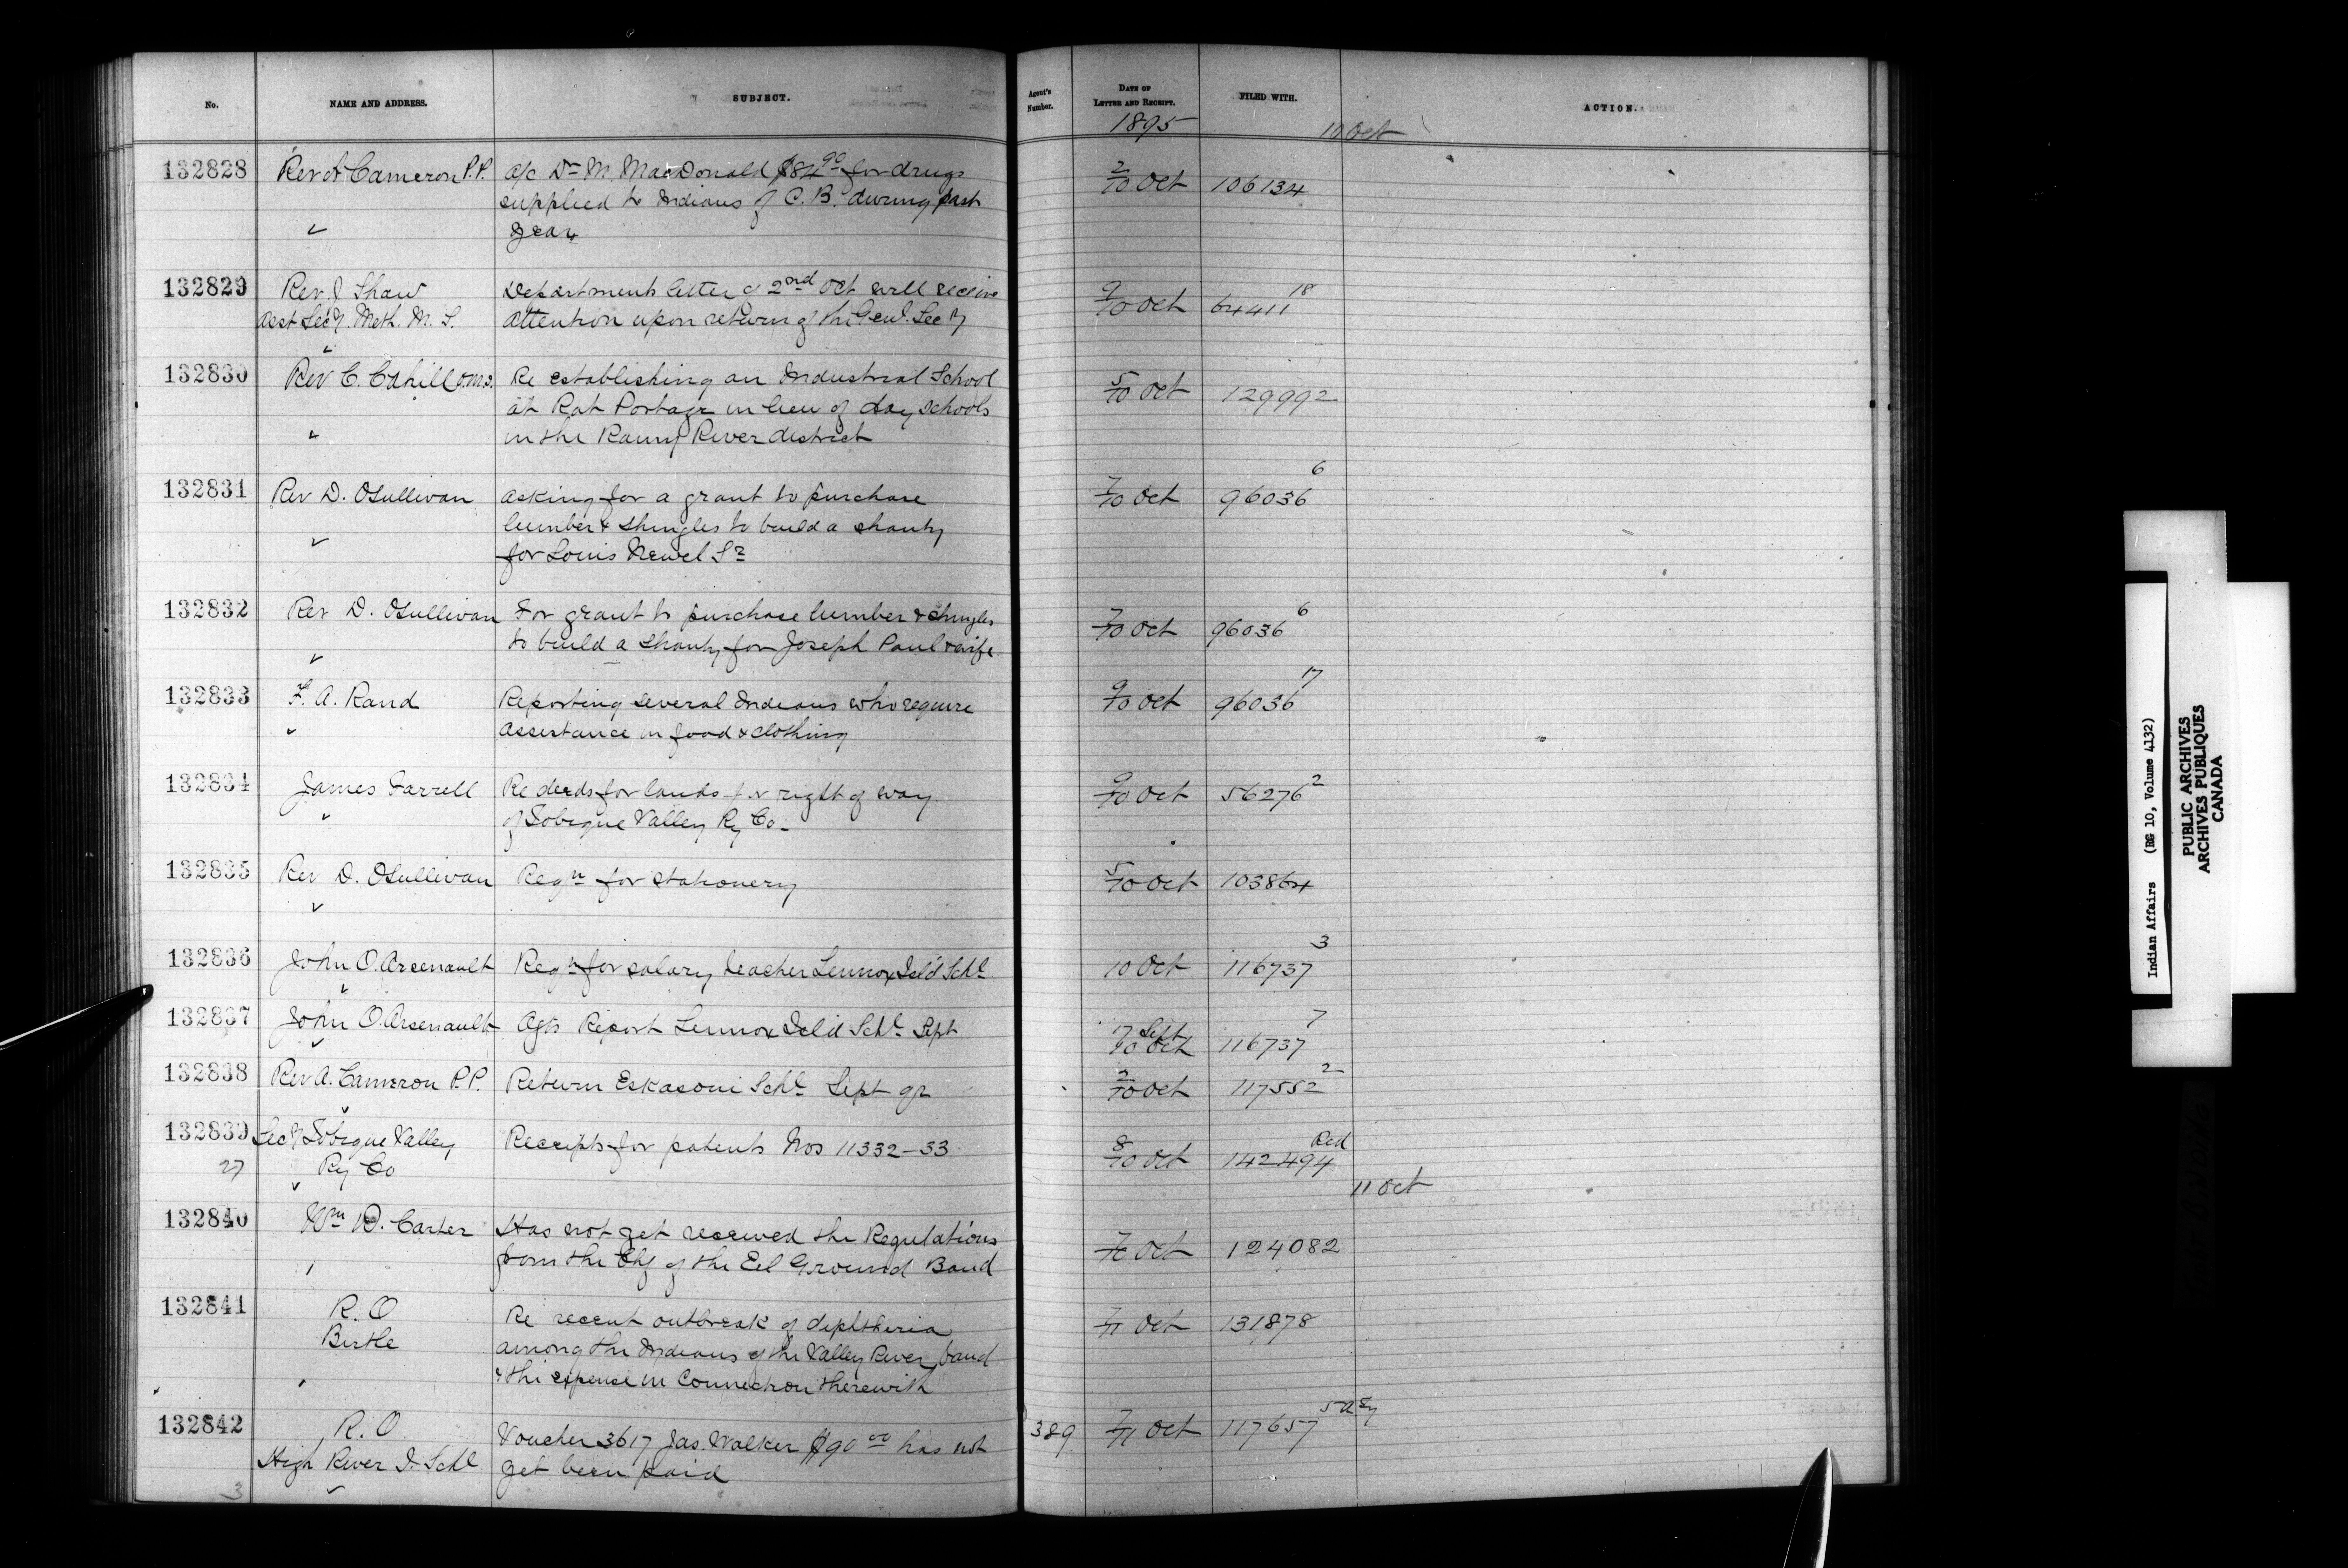 No. NAME AND ADDRESS. SUBJECT. Agent's Number. DATE OF LETTER AND RECEIPT. FILED WITH. ACTION.
1895 10 Oct
132828 Rev A Cameron P.P. a/c Dr M. MacDonald $84.90 for drugs 2/10 Oct 106134
supplied to Indians of C.B. during past
year
132829 Rev J Shaw Departments letter of 2nd Oct will receive 9/10 Oct 64411 18
Asst Secy. Meth. M. S. attention upon return of the Genl. Secy
132830 Rev C. Cahill O.M.I. Re establishing an Industrial School 5/10 Oct 129992
at Rat Portage in lieu of day schools
in the Rainy River district
132831 Rev D. OSullivan asking for a grant to purchase 7/10 Oct 96036 6
lumber & shingles to build a shanty
for Louis Newel Sr
132832 Rev D. OSullivan For grant to purchase lumber & shingles 7/10 Oct 96036 6
to build a shanty for Joseph Paul & wife
132833 F. A. Rand Reporting several Indians who require 9/10 Oct 96036 17
assistance in food & clothing
132834 James Farrell Re deeds for lands for right of way 9/10 Oct 56276 2
of Tobique Valley Ry Co.
132835 Rev D. OSullivan Reqn for stationery 5/10 Oct 103864
132836 John O. Arsenault Reqn for salary teacher Lennox Isl'd Schl 10 Oct 116737 3
132837 John O. Arsenault Agts Report Lennox Isl'd Schl Sept 17 Sept/10 Oct 116737 7
132838 Rev A. Cameron P.P. Return Eskasoni Schl Sept qr 2/10 Oct 117552 2
132839 Secy Tobique Valley Receipts for patents Nos 11332-33 8/10 Oct 142494 Red
27 Ry Co
11 Oct
132840 Wm D. Carter Has not yet received the Regulations 7/10 Oct 124082
from the Chf of the Eel Ground Band
132841 R. O Re recent outbreak of diphtheria 7/11 Oct 131878
Birtle among the Indians of the Valley River band
& the expense in connection therewith
132842 R. O. Voucher 3617 Jas. Walker $90.00 has not 389 7/11 Oct 117657
High River I. Schl yet been paid
3
Indian Affairs (RG 10, Volume 4132)
PUBLIC ARCHIVES
ARCHIVES PUBLIQUES
CANADA